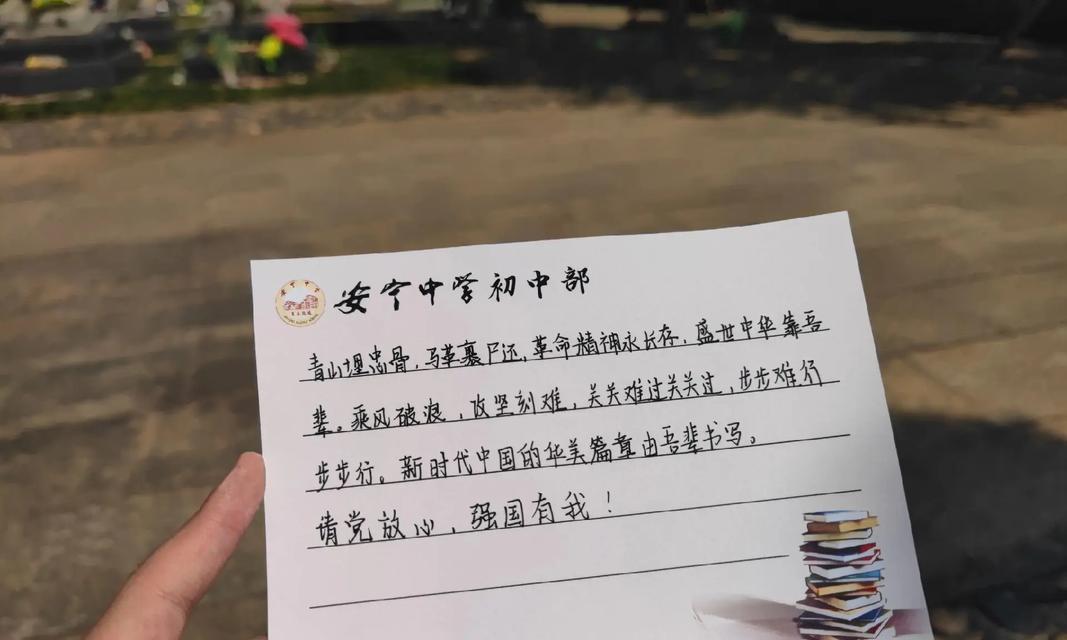 安宁中学初中部
青山埋忠骨，马革裹尸还，革命精神永长存，盛世中华靠吾
辈。乘风破浪，攻坚刻难，关关难过关关过，步步难行
步步行。新时代中国的华美篇章由吾辈书写。
请党放心，强国有我！